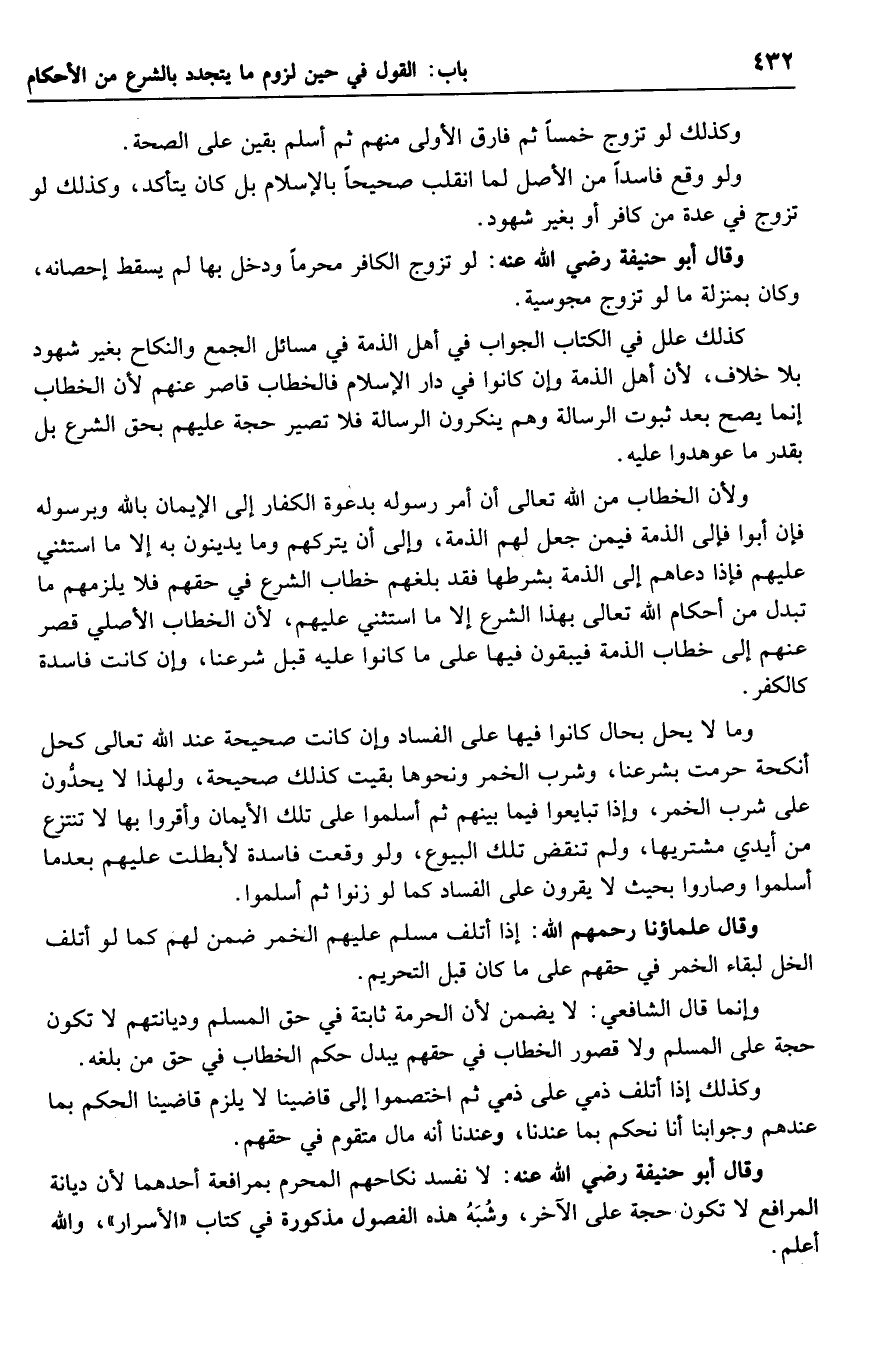 ٤٣٢
باب: القول في حين لزوم ما يتجدد بالشرع من الأحكام
وكذلك لو تزوج خمساً ثم فارق الأولى منهم ثم أسلم بقين على الصحة.
ولو وقع فاسداً من الأصل لما انقلب صحيحاً بالإسلام بل كان يتأكد، وكذلك لو
تزوج في عدة من كافر أو بغير شهود.
وقال أبو حنيفة رضي الله عنه: لو تزوج الكافر محرماً ودخل بها لم يسقط إحصانه،
وكان بمنزلة ما لو تزوج مجوسية.
كذلك علل في الكتاب الجواب في أهل الذمة في مسائل الجمع والنكاح بغير شهود
بلا خلاف، لأن أهل الذمة وإن كانوا في دار الإسلام فالخطاب قاصر عنهم لأن الخطاب
إنما يصح بعد ثبوت الرسالة وهم ينكرون الرسالة فلا تصير حجة عليهم بحق الشرع بل
بقدر ما عوهدوا عليه.
ولأن الخطاب من الله تعالى أن أمر رسوله بدعوة الكفار إلى الإيمان بالله وبرسوله
فإن أبوا فإلى الذمة فيمن جعل لهم الذمة، وإلى أن يتركهم وما يدينون به إلا ما استثني
عليهم فإذا دعاهم إلى الذمة بشرطها فقد بلغهم خطاب الشرع في حقهم فلا يلزمهم ما
تبدل من أحكام الله تعالى بهذا الشرع إلا ما استثني عليهم، لأن الخطاب الأصلي قصر
عنهم إلى خطاب الذمة فيبقون فيها على ما كانوا عليه قبل شرعنا، وإن كانت فاسدة
كالكفر.
وما لا يحل بحال كانوا فيها على الفساد وإن كانت صحيحة عند الله تعالى كحل
أنكحة حرمت بشرعنا، وشرب الخمر ونحوها بقيت كذلك صحيحة، ولهذا لا يحدُّون
على شرب الخمر، وإذا تبايعوا فيما بينهم ثم أسلموا على تلك الأيمان وأقروا بها لا تنتزع
من أيدي مشتريها، ولم تنقض تلك البيوع، ولو وقعت فاسدة لأبطلت عليهم بعدما
أسلموا وصاروا بحيث لا يقرون على الفساد كما لو زنوا ثم أسلموا.
وقال علماؤنا رحمهم الله: إذا أتلف مسلم عليهم الخمر ضمن لهم كما لو أتلف
الخل لبقاء الخمر في حقهم على ما كان قبل التحريم.
وإنما قال الشافعي: لا يضمن لأن الحرمة ثابتة في حق المسلم وديانتهم لا تكون
حجة على المسلم ولا قصور الخطاب في حقهم يبدل حكم الخطاب في حق من بلغه.
وكذلك إذا أتلف ذمي على ذمي ثم اختصموا إلى قاضينا لا يلزم قاضينا الحكم بما
عندهم وجوابنا أنا نحكم بما عندنا، وعندنا أنه مال متقوم في حقهم.
وقال أبو حنيفة رضي الله عنه: لا نفسد نكاحهم المحرم بمرافعة أحدهما لأن ديانة
المرافع لا تكون حجة على الآخر، وشُبَهُ هذه الفصول مذكورة في كتاب «الأسرار»، والله
أعلم.